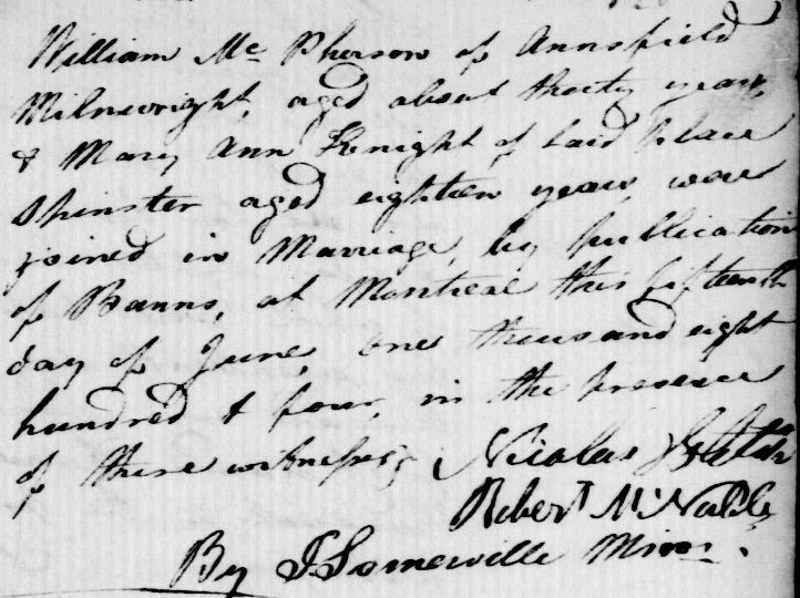 William Mc Pherson of Annsfield
Milnwright, aged about thirty years,
& Mary Ann Knight of said place
Spinster aged eighteen years, were
joined in Marriage, by publication
of Banns, at Montreal this fifteenth
day of June, one thousand eight
hundred & four, in the presence
of these witnesses; Nicolas
Robert McNable
By J Somerville Minr.